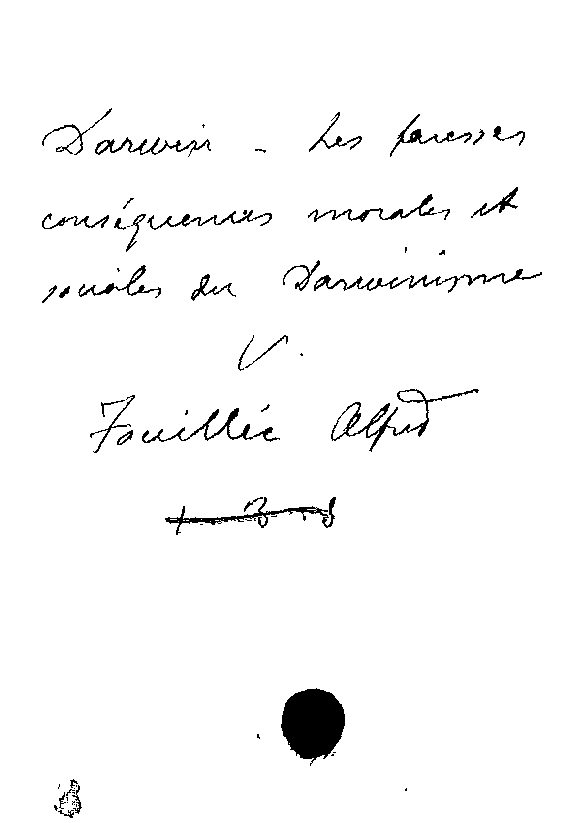 Darwin - Les fausses
conséquences morales et
sociales du Darwinisme
V.
Fouillée Alfred